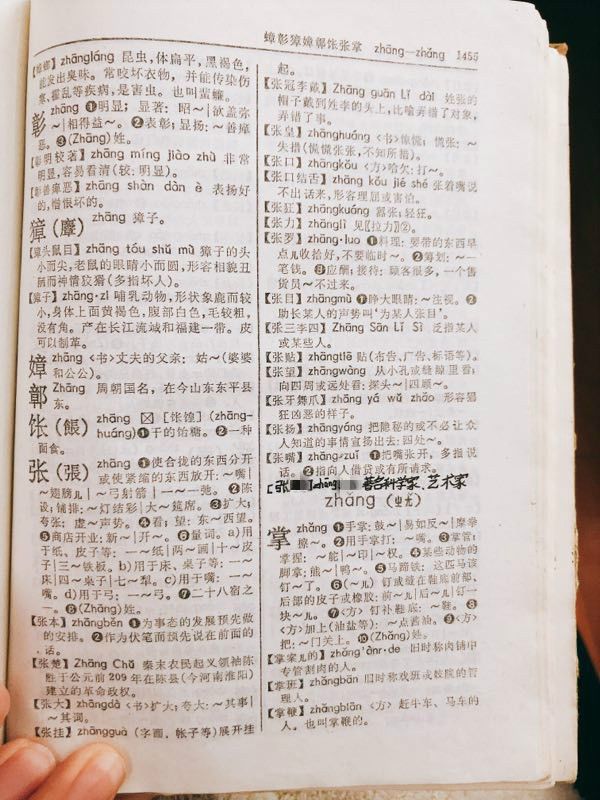 蟑彰獐嫜鄣𫗠张掌 zhāng—zhǎng 1455
【蟑螂】zhāngláng 昆虫,体扁平,黑褐色,
能发出臭味。常咬坏衣物,并能传染伤
寒、霍乱等疾病,是害虫。也叫蜚蠊。
彰 zhāng ❶明显;显著:昭~|欲盖弥
~|相得益~。❷表彰;显扬:~善瘅
恶。❸(Zhāng)姓。
【彰明较著】zhāng míng jiào zhù 非常
明显,容易看清(较:明显)。
【彰善瘅恶】zhāng shàn dàn è 表扬好
的,憎恨坏的。
獐(麞) zhāng 獐子。
【獐头鼠目】zhāng tóu shǔ mù 獐子的头
小而尖,老鼠的眼睛小而圆,形容相貌丑
陋而神情狡猾(多指坏人)。
【獐子】zhāng·zi 哺乳动物,形状象鹿而较
小,身体上面黄褐色,腹部白色,毛较粗,
没有角。产在长江流域和福建一带。皮
可以制革。
嫜 zhāng 〈书〉丈夫的父亲:姑~(婆婆
和公公)。
鄣 Zhāng 周朝国名,在今山东东平县
东。
𫗠(餦) zhāng ☒[𫗠餭](zhāng-
huáng)❶干的饴糖。❷一种
面食。
张(張) zhāng ❶使合拢的东西分开
或使紧缩的东西放开:~嘴|
~翅膀儿|~弓射箭|一~一弛。❷陈
设;铺排:~灯结彩|大~筵席。❸扩大;
夸张:虚~声势。❹看;望:东~西望。
❺商店开业:新~|开~。❻量词。a)用
于纸、皮子等:一~纸|两~画|十~皮
子|三~铁板。b)用于床、桌子等:一~
床|四~桌子|七~犁。c)用于嘴:一~
嘴。d)用于弓:一~弓。❼二十八宿之
一。❽(Zhāng)姓。
【张本】zhāngběn ❶为事态的发展预先做
的安排。❷作为伏笔而预先说在前面的
话。
【张楚】Zhāng Chǔ 秦末农民起义领袖陈
胜于公元前209年在陈县(今河南淮阳)
建立的革命政权。
【张大】zhāngdà 〈书〉扩大;夸大:~其事|
~其词。
【张挂】zhāngguà (字画、帐子等)展开挂
起。
【张冠李戴】Zhāng guān Lǐ dài 姓张的
帽子戴到姓李的头上,比喻弄错了对象,
弄错了事。
【张皇】zhānghuáng 〈书〉惊慌;慌张:~
失措(慌慌张张,不知所措)。
【张口】zhāngkǒu 〈方〉哈欠:打~。
【张口结舌】zhāng kǒu jié shé 张着嘴说
不出话来,形容理屈或害怕。
【张狂】zhāngkuáng 嚣张;轻狂。
【张力】zhānglì 见〖拉力〗②。
【张罗】zhāng·luo ❶料理:要带的东西早
点儿收拾好,不要临时~。❷筹划:~一
笔钱。❸应酬;接待:顾客很多,一个售
货员~不过来。
【张目】zhāngmù ❶睁大眼睛:~注视。❷
助长某人的声势叫‘为某人张目’。
【张三李四】Zhāng Sān Lǐ Sì 泛指某人
或某些人。
【张贴】zhāngtiē 贴(布告、广告、标语等)。
【张望】zhāngwàng 从小孔或缝隙里看;
向四周或远处看:探头~|四顾~。
【张牙舞爪】zhāng yá wǔ zhǎo 形容猖
狂凶恶的样子。
【张扬】zhāngyáng 把隐秘的或不必让众
人知道的事情宣扬出去:四处~。
【张嘴】zhāng∥zuǐ ❶把嘴张开,多指说
话。❷指向人借贷或有所请求。
[张 zhāng 著名科学家、艺术家
zhǎng (ㄓㄤˇ)
掌 zhǎng ❶手掌:鼓~|易如反~|摩拳
擦~。❷用手掌打:~嘴。❸掌管;
掌握:~舵|~印|~权。❹某些动物的
脚掌:熊~|鸭~。❺马蹄铁:这匹马该
钉~了。❻(~儿)钉或缝在鞋底前部、
后部的皮子或橡胶:前~儿|后~儿|钉一
块~儿。❼〈方〉钉补鞋底:~鞋。❽
〈方〉加上(油盐等):~点酱油。❾〈方〉
把:~门关上。❿(Zhǎng)姓。
【掌案儿的】zhǎng'ànr·de 旧时称肉铺中
专管割肉的人。
【掌班】zhǎngbān 旧时称戏班或妓院的管
理人。
【掌鞭】zhǎngbiān 〈方〉赶牛车、马车的
人。也叫掌鞭的。